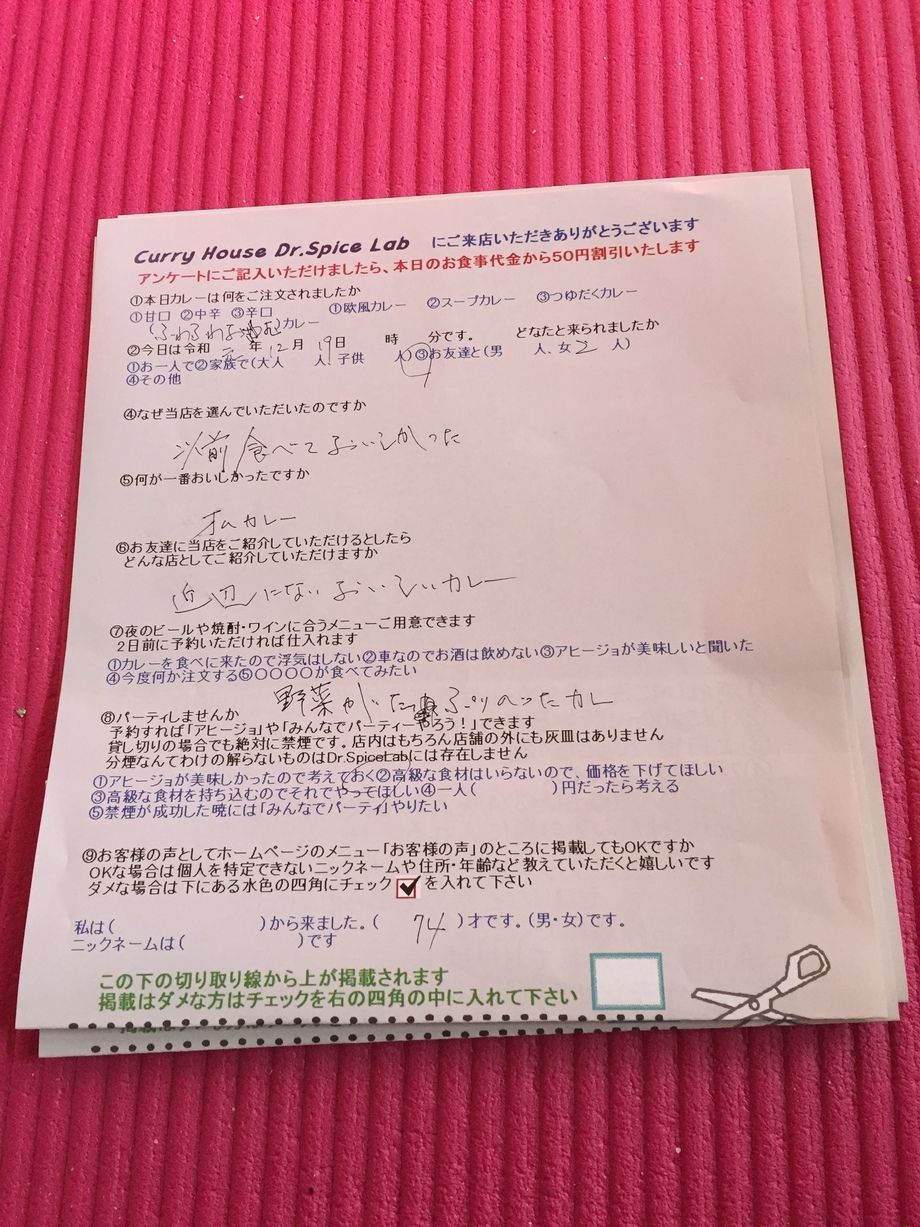 Curry House Dr.Spice Lab にご来店いただきありがとうございます
アンケートにご記入いただけましたら、本日のお食事代金から50円割引いたします
①本日カレーは何をご注文されましたか
①甘口 ②中辛 ③辛口 ①欧風カレー ②スープカレー ③つゆだくカレー
(ふわふわ カレー
②今日は令和 元 年 12 月 19 日 時 分です。 どなたと来られましたか
①お一人で②家族で(大人 人、子供 人)③お友達と(男 人、女 2 人)
④その他
④なぜ当店を選んでいただいたのですか
以前食べておいしかった
⑤何が一番おいしかったですか
オムカレー
⑥お友達に当店をご紹介していただけるとしたら
どんな店としてご紹介していただけますか
近辺にないおいしいカレー
⑦夜のビールや焼酎・ワインに合うメニューご用意できます
2日前に予約いただければ仕入れます
①カレーを食べに来たので浮気はしない②車なのでお酒は飲めない③アヒージョが美味しいと聞いた
④今度何か注文する⑤〇〇〇〇が食べてみたい
野菜が ぷりのったカレ
⑧パーティしませんか
予約すれば「アヒージョ」や「みんなでパーティーやろう！」できます
貸し切りの場合でも絶対に禁煙です。店内はもちろん店舗の外にも灰皿はありません
分煙なんてわけの解らないものはDr.SpiceLabには存在しません
①アヒージョが美味しかったので考えておく②高級な食材はいらないので、価格を下げてほしい
③高級な食材を持ち込むのでそれでやってほしい④一人( )円だったら考える
⑤禁煙が成功した暁には「みんなでパーティ」やりたい
⑨お客様の声としてホームページのメニュー「お客様の声」のところに掲載してもOKですか
OKな場合は個人を特定できないニックネームや住所・年齢など教えていただくと嬉しいです
ダメな場合は下にある水色の四角にチェック を入れて下さい
私は( )から来ました。( 74 )才です。(男・女)です。
ニックネームは( )です
この下の切り取り線から上が掲載されます
掲載はダメな方はチェックを右の四角の中に入れて下さい